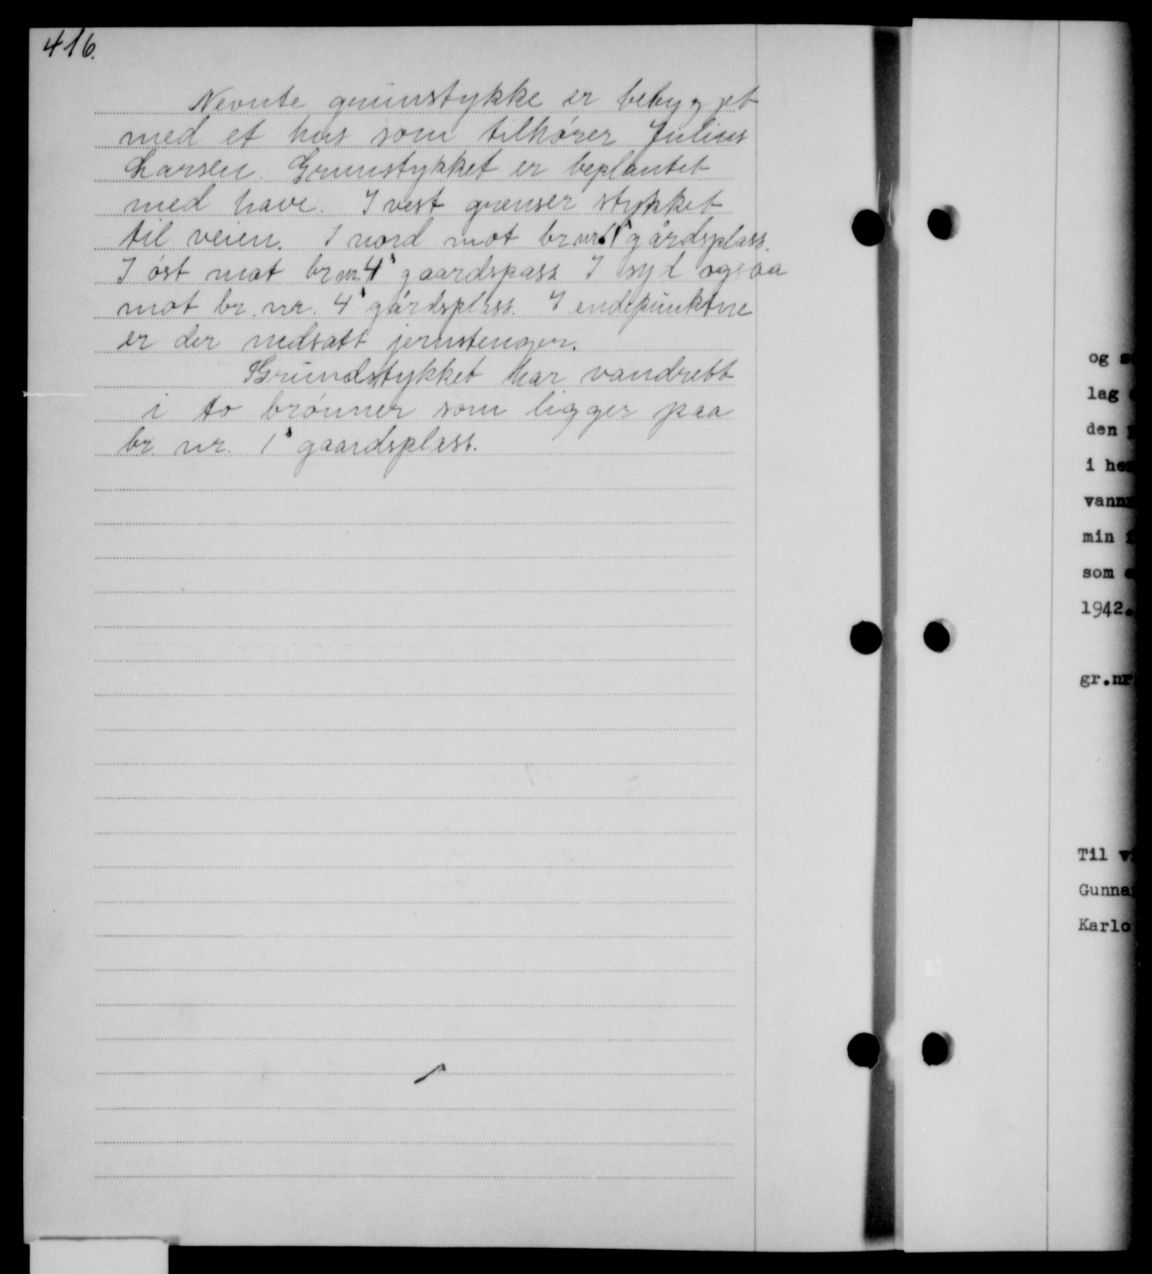 416.
Nevnte grunnstykke er bebygget
med et hus som tilhører Julius
Larsen. Grunnstykket er beplantet
med have. I vest grenser stykket
til veien. I nord mot br.nr. 1's gårdsplass.
I øst mot br.nr. 4's gaardspass I syd ogsaa
mot br. nr. 4's gårdsplass. I endepunktene
er der nedsatt jernstenger.
Grundstykket har vandrett
i to brønner som ligger paa
br. nr. 1's gaardsplass.
og
lag
den
i
vann
min
som
1942.
gr.nr
Til
Gunna
Karlo